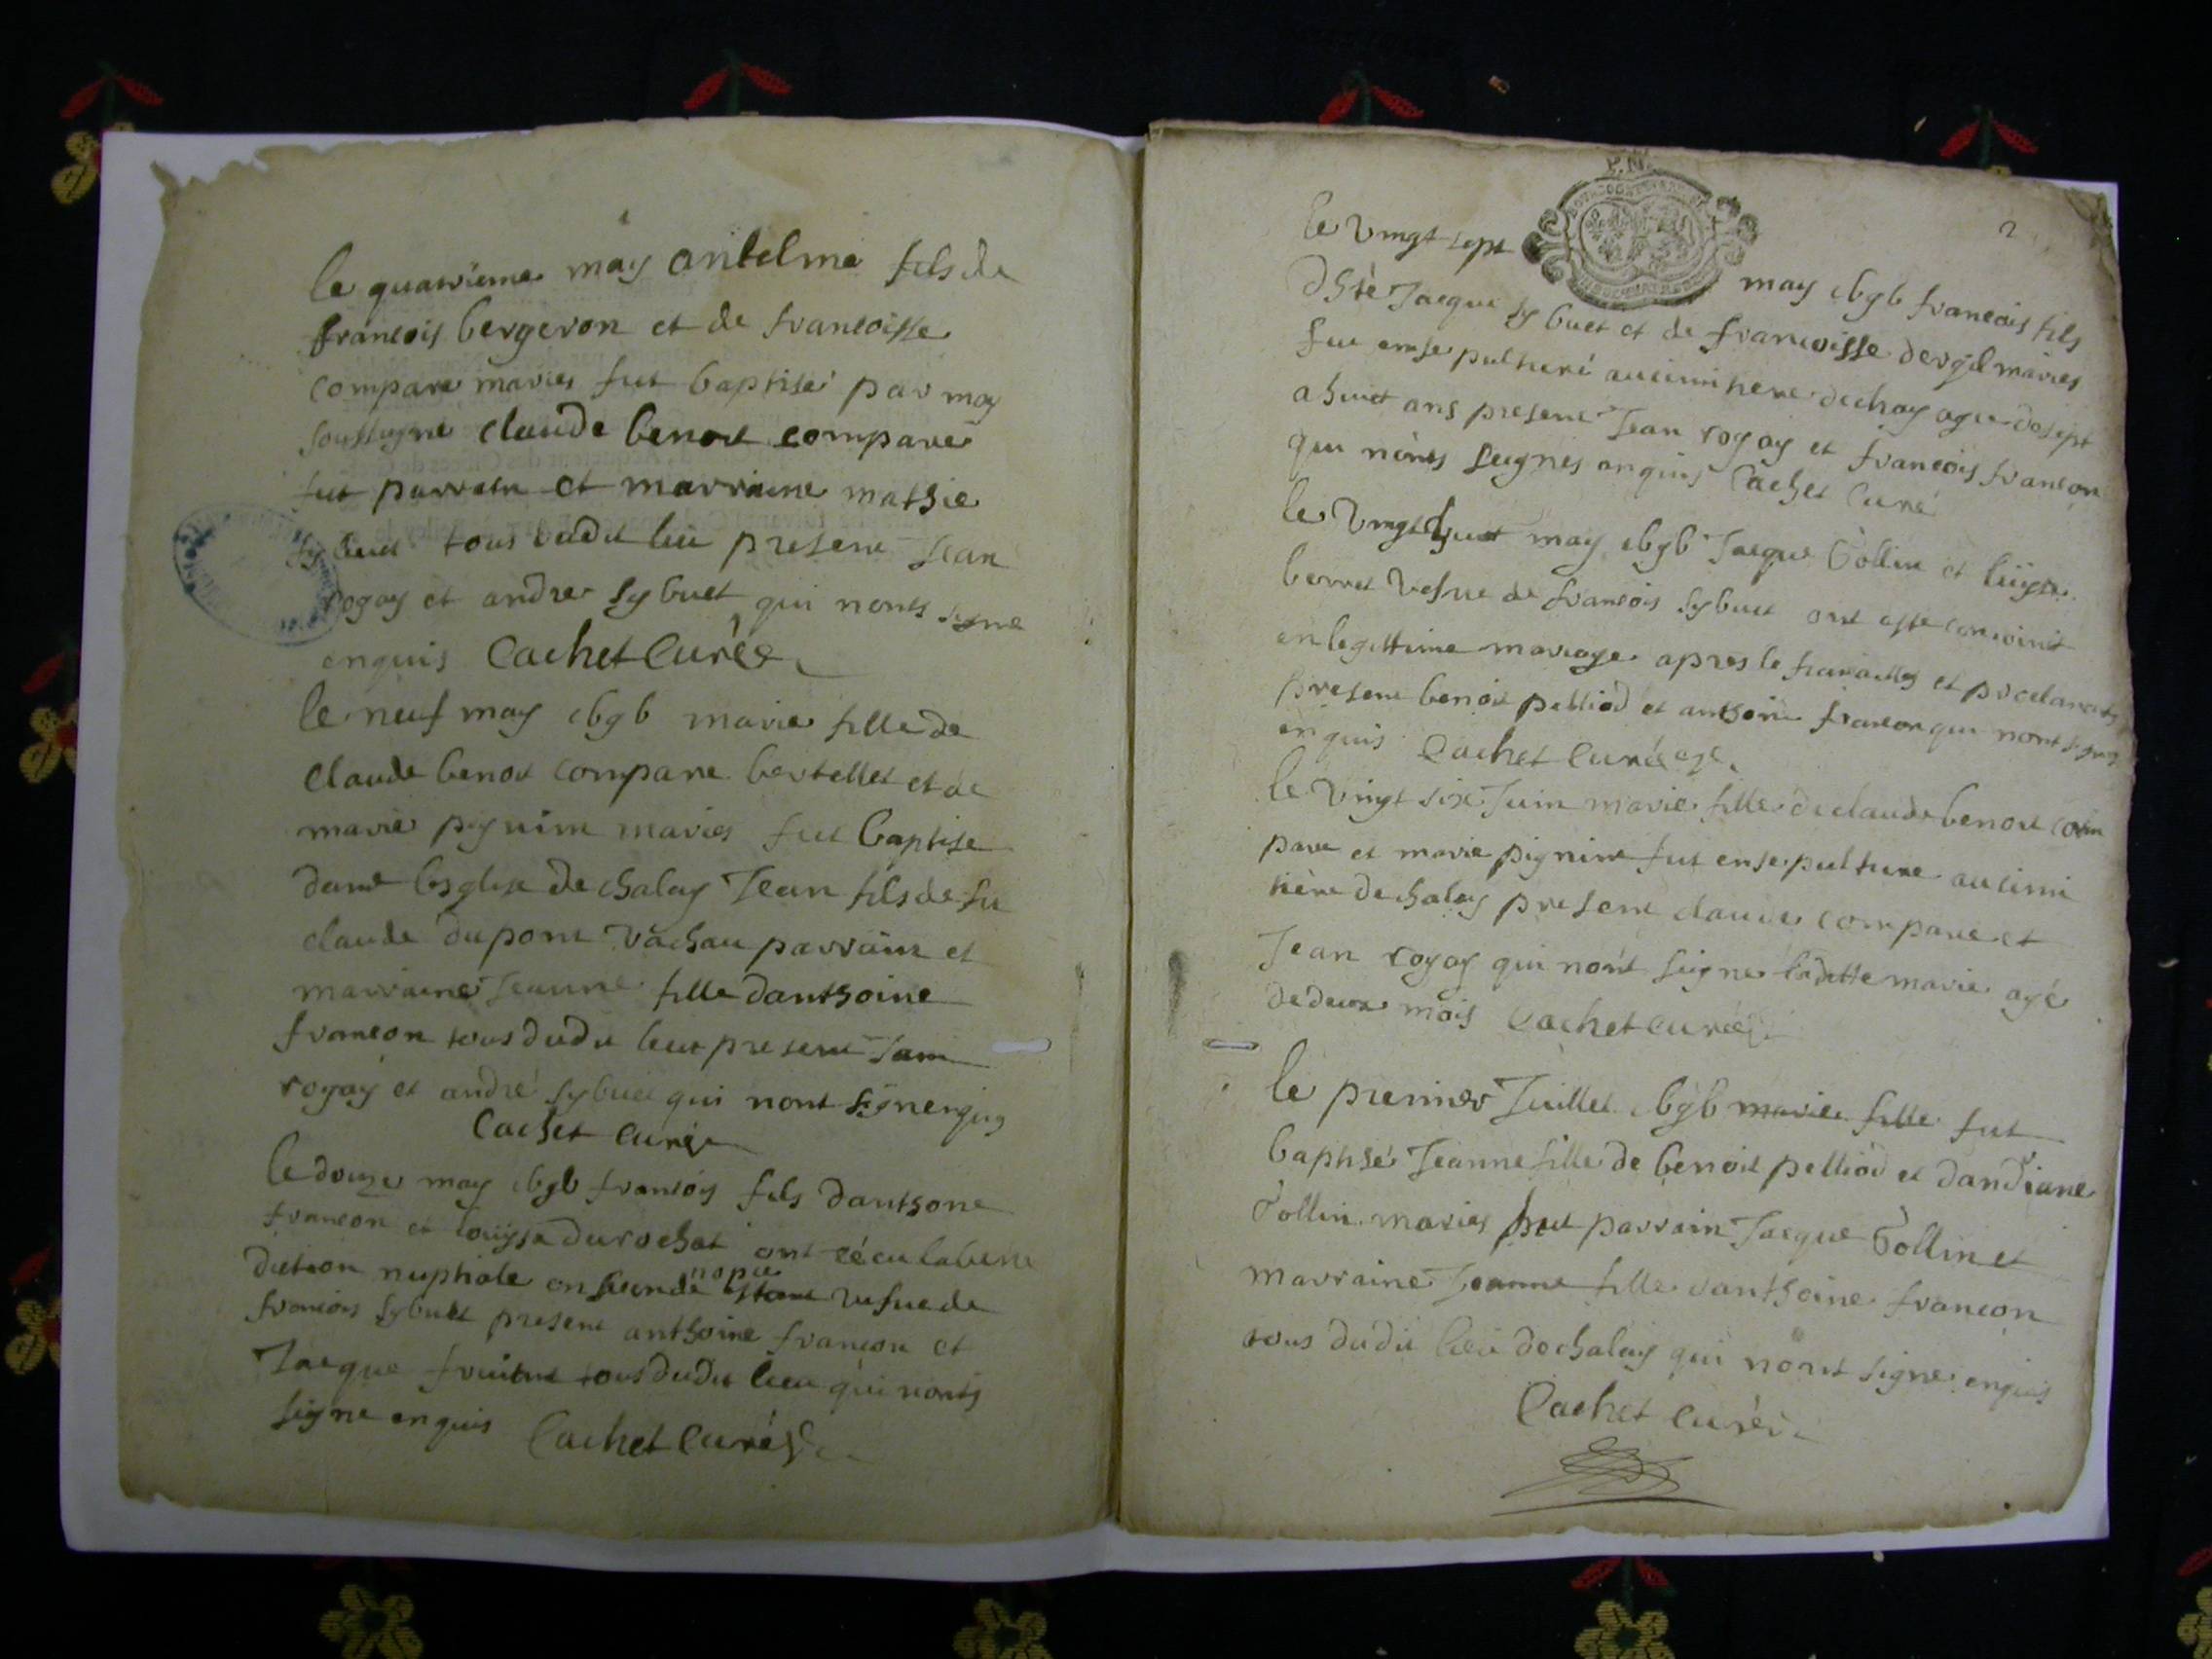 le quatrieme may antelme fils de
francois bergeron et de francoisse
compare maries fut baptisé par moy
soussigne claude benoit compare
fut parrain et marraine mathie
sybuet tous dudit lieu present Jean
rogay et andre sybuet qui nonts signe
enquis Cachet Curé
le neuf may cbgb marie fille de
claude benoit compare bertellet et de
marie pignim maries fut baptise
dans lesglise de chaley Jean fils de fu
claude dupont vachau parrain et
marraine Jeanne fille danthoine
francon tous dudit lieu present Jean
rogay et andré sybuet qui nont signe enquis
Cachet Curé
le douze may cbgb francois fils danthone
francon et louyse durochat ont récu la bene
diction nuptiale en seconde nopce estant vefue de
francois sybuet present anthoine francon et
Jacque tous dudit lieu qui nonts
signe enquis Cachet Curé
2
le vingt sept may cbgb francois fils
Jacque sybuet et de francoisse maries
fut ensepulturé au cimitiere de chaley age de sept
a huict ans present Jean rogay et francois francon
qui nonts signes enquis Cachet Curé
le vingt huit may cbgb Jacque Tollin et louyse
berret vefue de francois sybuet ont esté conjoinit
en legittime mariage apres le fiancailles et proclamats
present benoit pelliod et anthoine francon qui nont signes
enquis Cachet Curé
le vingt six Juin marie fille de claude benoit com
pare et marie pignim fut ensepulture au cimi
tière de chaley present claude compare et
Jean rogay qui nont signe laditte marie agé
de deux mois Cachet Curé
le premier Juillet cbgb marie fille fut
baptisé Jeanne fille de benoit pelliod et dandiane
Tollin maries fut parrain Jacque Tollin et
marraine Jeanne fille danthoine francon
tous dudit lieu de chaley qui nont signe enquis
Cachet Curé